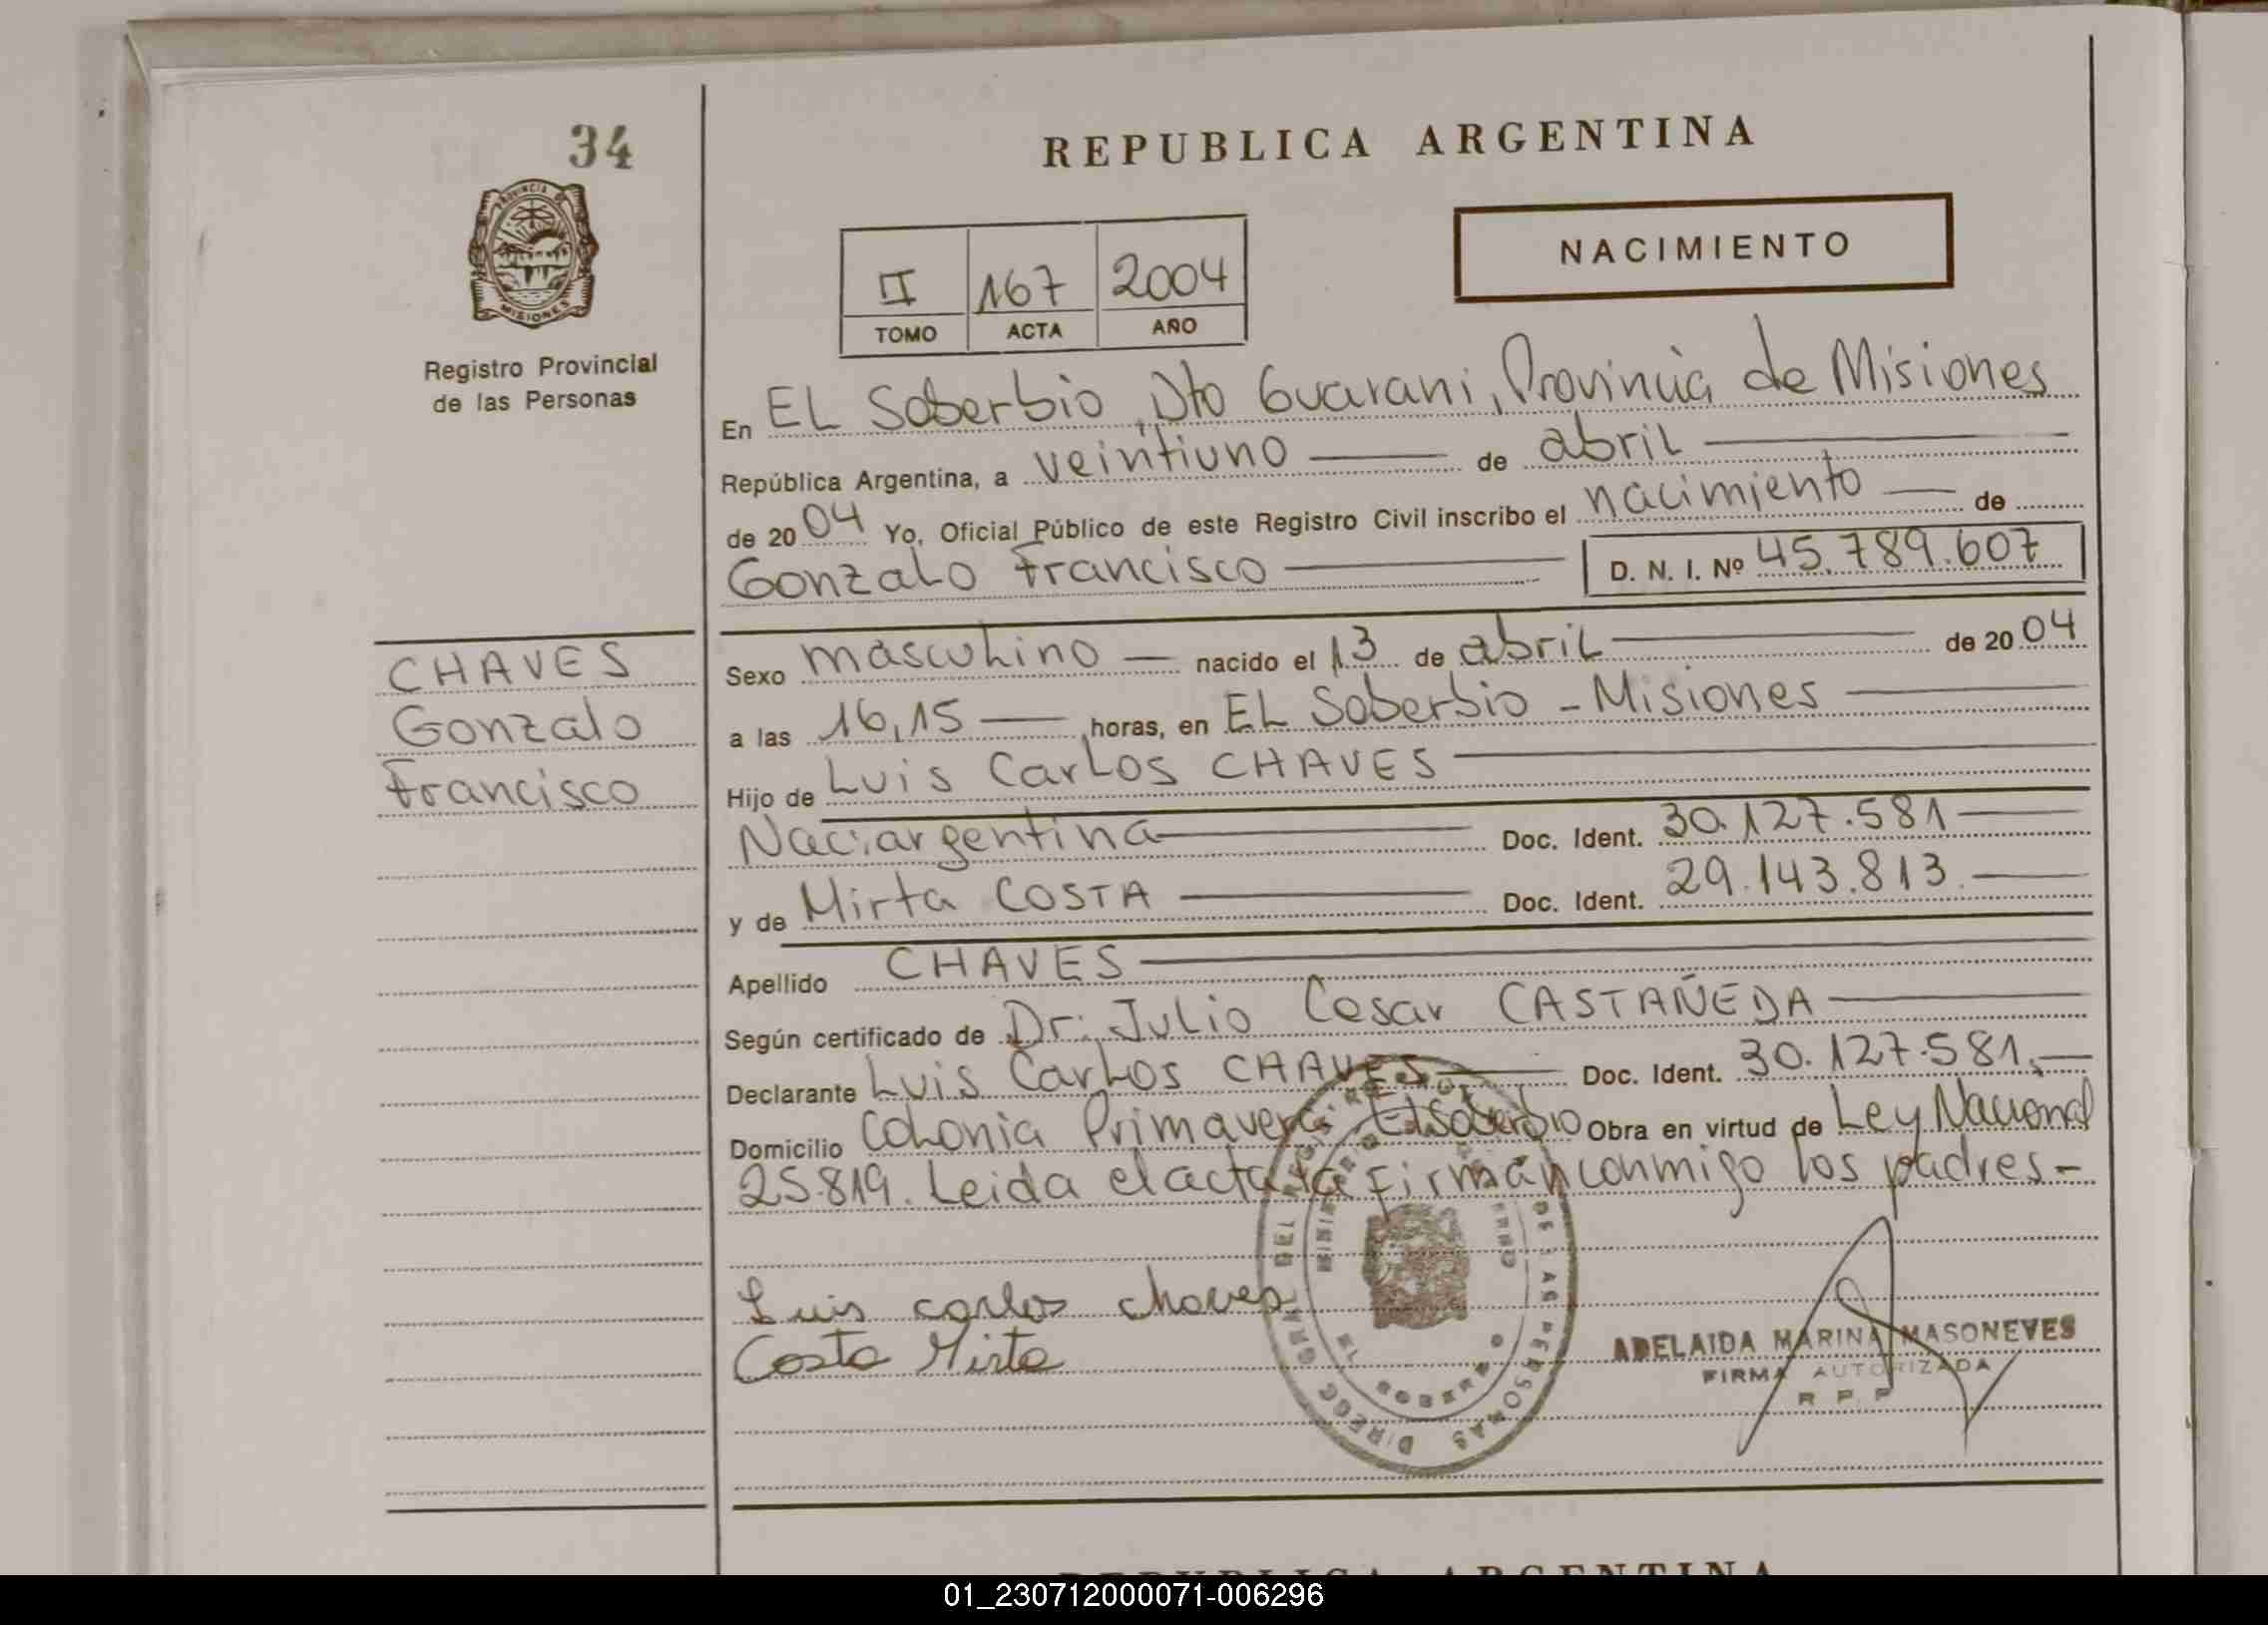 34
PROVINCIA DE
MISIONES
Registro Provincial
de las Personas
REPUBLICA ARGENTINA
NACIMIENTO
II 167 2004
TOMO ACTA AÑO
En EL Soberbio, Dto Guarani, Provincia de Misiones
República Argentina, a veintiuno de abril
de 2004 Yo, Oficial Público de este Registro Civil inscribo el nacimiento de
Gonzalo Francisco D. N. I. Nº 45.789.607
CHAVES
Gonzalo
Francisco
Sexo masculino nacido el 13 de abril de 2004
a las 16,15 horas, en EL Soberbio - Misiones
Hijo de Luis Carlos CHAVES
Naci:argentina Doc. Ident. 30.127.581
y de Mirta COSTA Doc. Ident. 29.143.813.
Apellido CHAVES
Según certificado de Dr: Julio Cesar CASTAÑEDA
Declarante Luis Carlos CHAVES Doc. Ident. 30.127.581.
Domicilio Colonia Primavera ELSoberbio Obra en virtud de Ley Nacional
25.819. Leida el acta la firman conmigo los padres-
Luis carlos chaves
Costa Mirta
ADELAIDA MARINA MASONEVES
FIRMA AUTORIZADA
R. P. P
DE LAS PERSONAS
REPUBLICA ARGENTINA
01_230712000071-006296